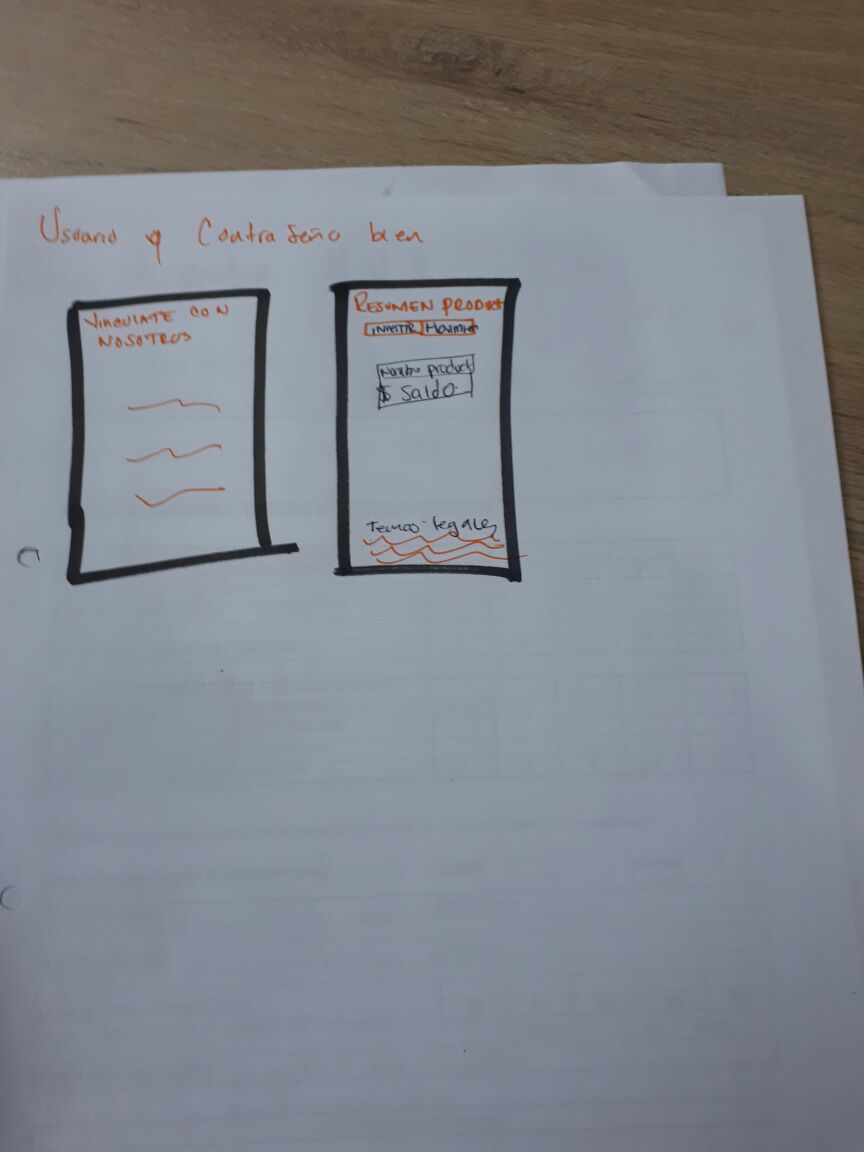 Usuario y Contraseña bien
VINCULATE CON
NOSOTROS
RESUMEN PRODUCT
INVERTIR Movimien
Nombre product
$ Saldo.
legales